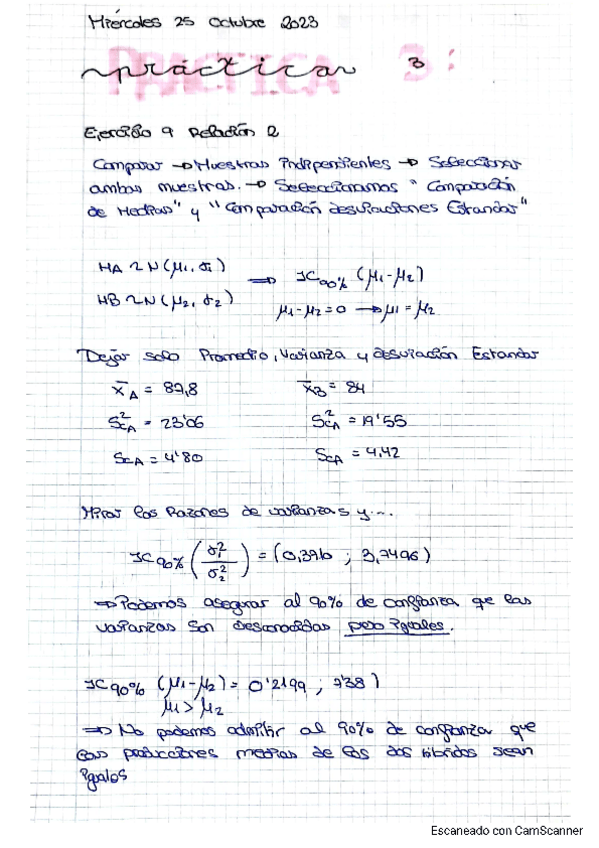 Miércoles 25 Octubre 2023
práctica 3:
PRACTICA
Ejercicio 9 Relación 2
Comparar → Muestras Independientes → Seleccionar
ambas muestras. → Seleccionamos "Comparación
de Medias" y "Comparación desviaciones Estandar"
HA ~ N(μ1, σ1) ⇒ IC90% (μ1-μ2)
HB ~ N(μ2, σ2) μ1-μ2=0 → μ1 = μ2
Dejar solo Promedio, Varianza y desviación Estandar
x̄A = 87,8 x̄B = 84
S²cA = 23'06 S²cA = 19'55
ScA = 4'80 ScA = 4,42
Mirar las Razones de varianzas y...
IC90% (σ1²/σ2²) = (0,3710 ; 3,7496)
⇒ Podemos asegurar al 90% de confianza que las
varianzas son desconocidas pero iguales.
IC90% (μ1-μ2) = 0'2199 ; 7'38)
μ1 > μ2
⇒ No podemos admitir al 90% de confianza que
las producciones medias de los dos híbridos sean
iguales
Escaneado con CamScanner